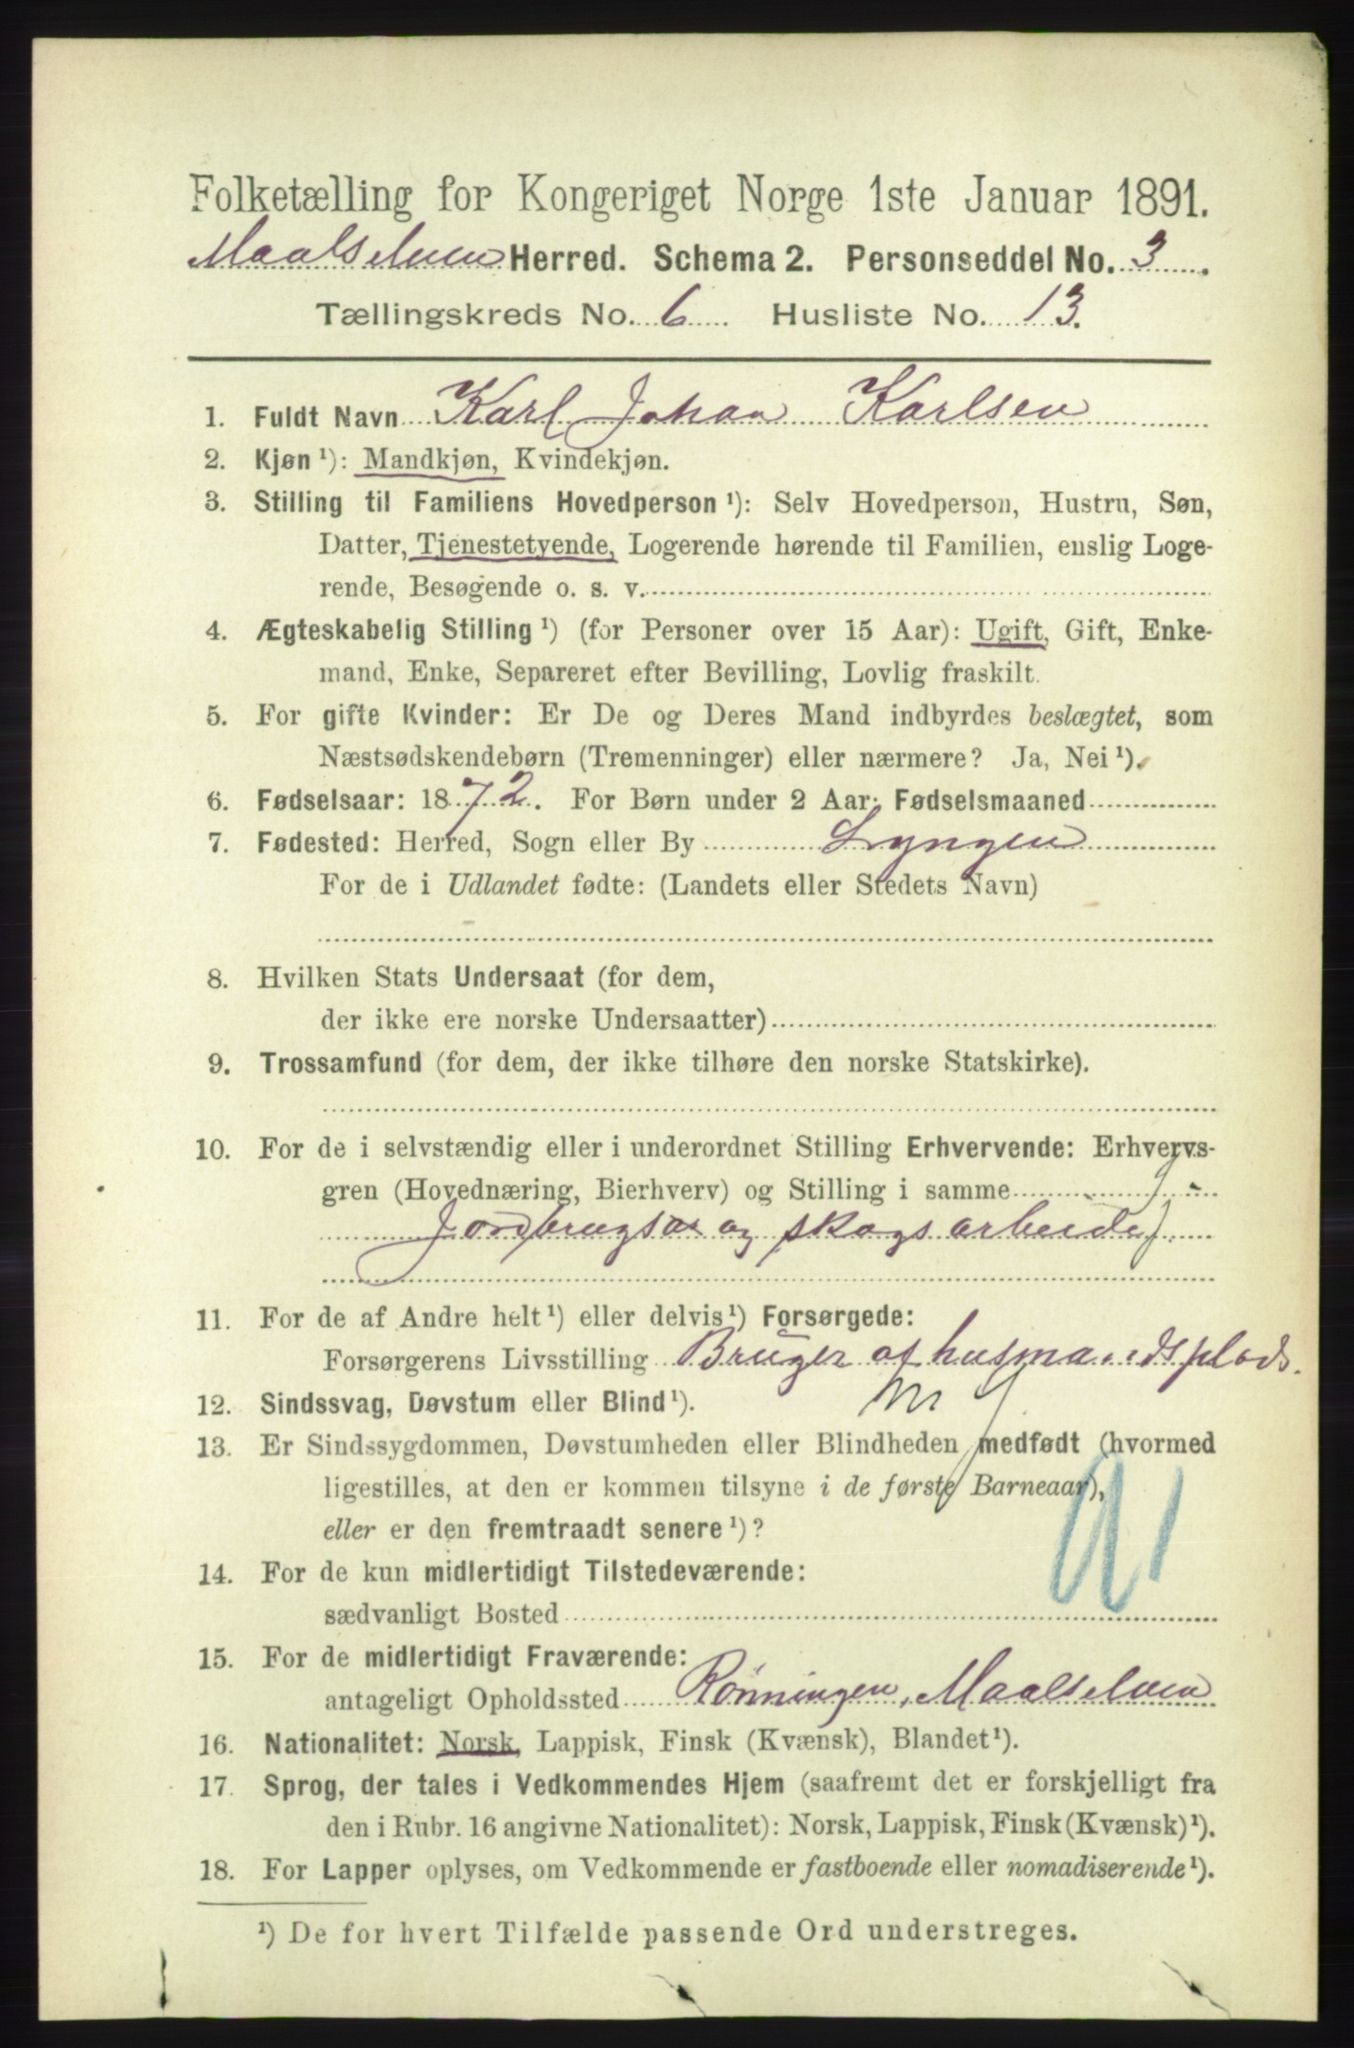 Folketælling for Kongeriget Norge 1ste Januar 1891.
Maalselven Herred. Schema 2. Personseddel No. 3.
Tællingskreds No. 6. Husliste No. 13.
1. Fuldt Navn Karl Johan Karlsen
2. Kjøn ¹): Mandkjøn, Kvindekjøn.
3. Stilling til Familiens Hovedperson ¹): Selv Hovedperson, Hustru, Søn,
Datter, Tjenestetyende, Logerende hørende til Familien, enslig Loge-
rende, Besøgende o. s. v.
4. Ægteskabelig Stilling ¹) (for Personer over 15 Aar): Ugift, Gift, Enke-
mand, Enke, Separeret efter Bevilling, Lovlig fraskilt.
5. For gifte Kvinder: Er De og Deres Mand indbyrdes beslægtet, som
Næstsødskendebørn (Tremenninger) eller nærmere? Ja, Nei ¹).
6. Fødselsaar: 1872. For Børn under 2 Aar: Fødselsmaaned
7. Fødested: Herred, Sogn eller By Lyngen
For de i Udlandet fødte: (Landets eller Stedets Navn)
8. Hvilken Stats Undersaat (for dem,
der ikke ere norske Undersaatter)
9. Trossamfund (for dem, der ikke tilhøre den norske Statskirke).
10. For de i selvstændig eller i underordnet Stilling Erhvervende: Erhvervs-
gren (Hovednæring, Bierhverv) og Stilling i samme
Jordbrugs og skogsarbeide
11. For de af Andre helt ¹) eller delvis ¹) Forsørgede:
Forsørgerens Livsstilling Bruger af husmandsplads.
12. Sindssvag, Døvstum eller Blind ¹).
13. Er Sindssygdommen, Døvstumheden eller Blindheden medfødt (hvormed
ligestilles, at den er kommen tilsyne i de første Barneaar),
eller er den fremtraadt senere ¹)?
91
14. For de kun midlertidigt Tilstedeværende:
sædvanligt Bosted
15. For de midlertidigt Fraværende:
antageligt Opholdssted Rønningen, Maalselven
16. Nationalitet: Norsk, Lappisk, Finsk (Kvænsk), Blandet ¹).
17. Sprog, der tales i Vedkommendes Hjem (saafremt det er forskjelligt fra
den i Rubr. 16 angivne Nationalitet): Norsk, Lappisk, Finsk (Kvænsk) ¹).
18. For Lapper oplyses, om Vedkommende er fastboende eller nomadiserende ¹).
¹) De for hvert Tilfælde passende Ord understreges.